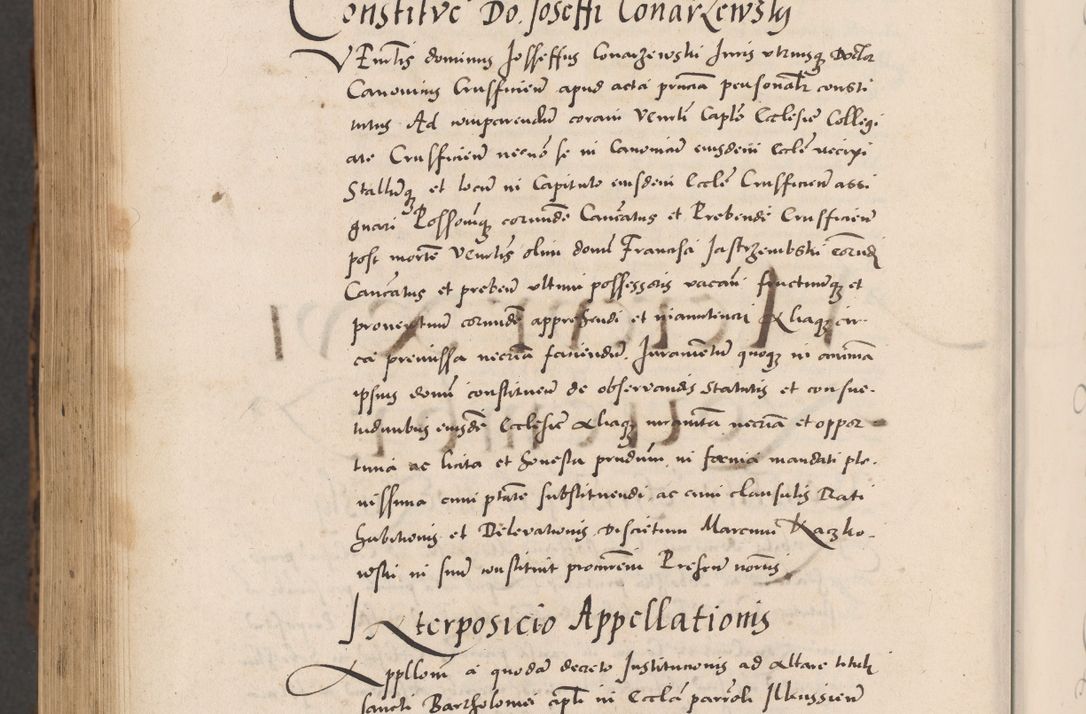 Constitue Do. Joseffi Conarzewsky
VEnrlis dominus Josseffus Conarzewski Juris vtriusq Doctor
Canonicus Crusficien apud acta pntia personalr consti
tutus Ad comparendu coram Venrli Caplo Ecclesie Collegi
ate Crusficien necno se in Canonicu eiusdem Eccle recipi
Stallumq et locu in Capitulo eiusdem Eccle Crusficien assi
gnari Possonisq eorunde Canctatus et Prebende Crusficien
post morte Venrlis olim domi Francisci Jastrzembski eorude
Canctatus et preben vltimi possessoris vacan fructuumq et
prouentuum eorunde apprehendi et manuteneri Aliaq cir-
ca premissa necria faciendu. Juramentu quoq in animam
ipsius domi constituen de obseruandis Statutis et consue-
tudinibus eiusde Ecclesie aliaq iurameta necria et oppor
tuna ac licita et honesta prestdum in forma mandati ple-
nissima cum ptate substituendi ac cum clausulis Rati
habitionis et Releuationis Discretum Marcum Raczko-
wski in suu constituit procurem Presen nottus
Interposicio Appellationis
Appllom a quoda decreto Institucionis ad Altare tituli
sancti Bartholomei apli in Eccla parroli Ilkussien